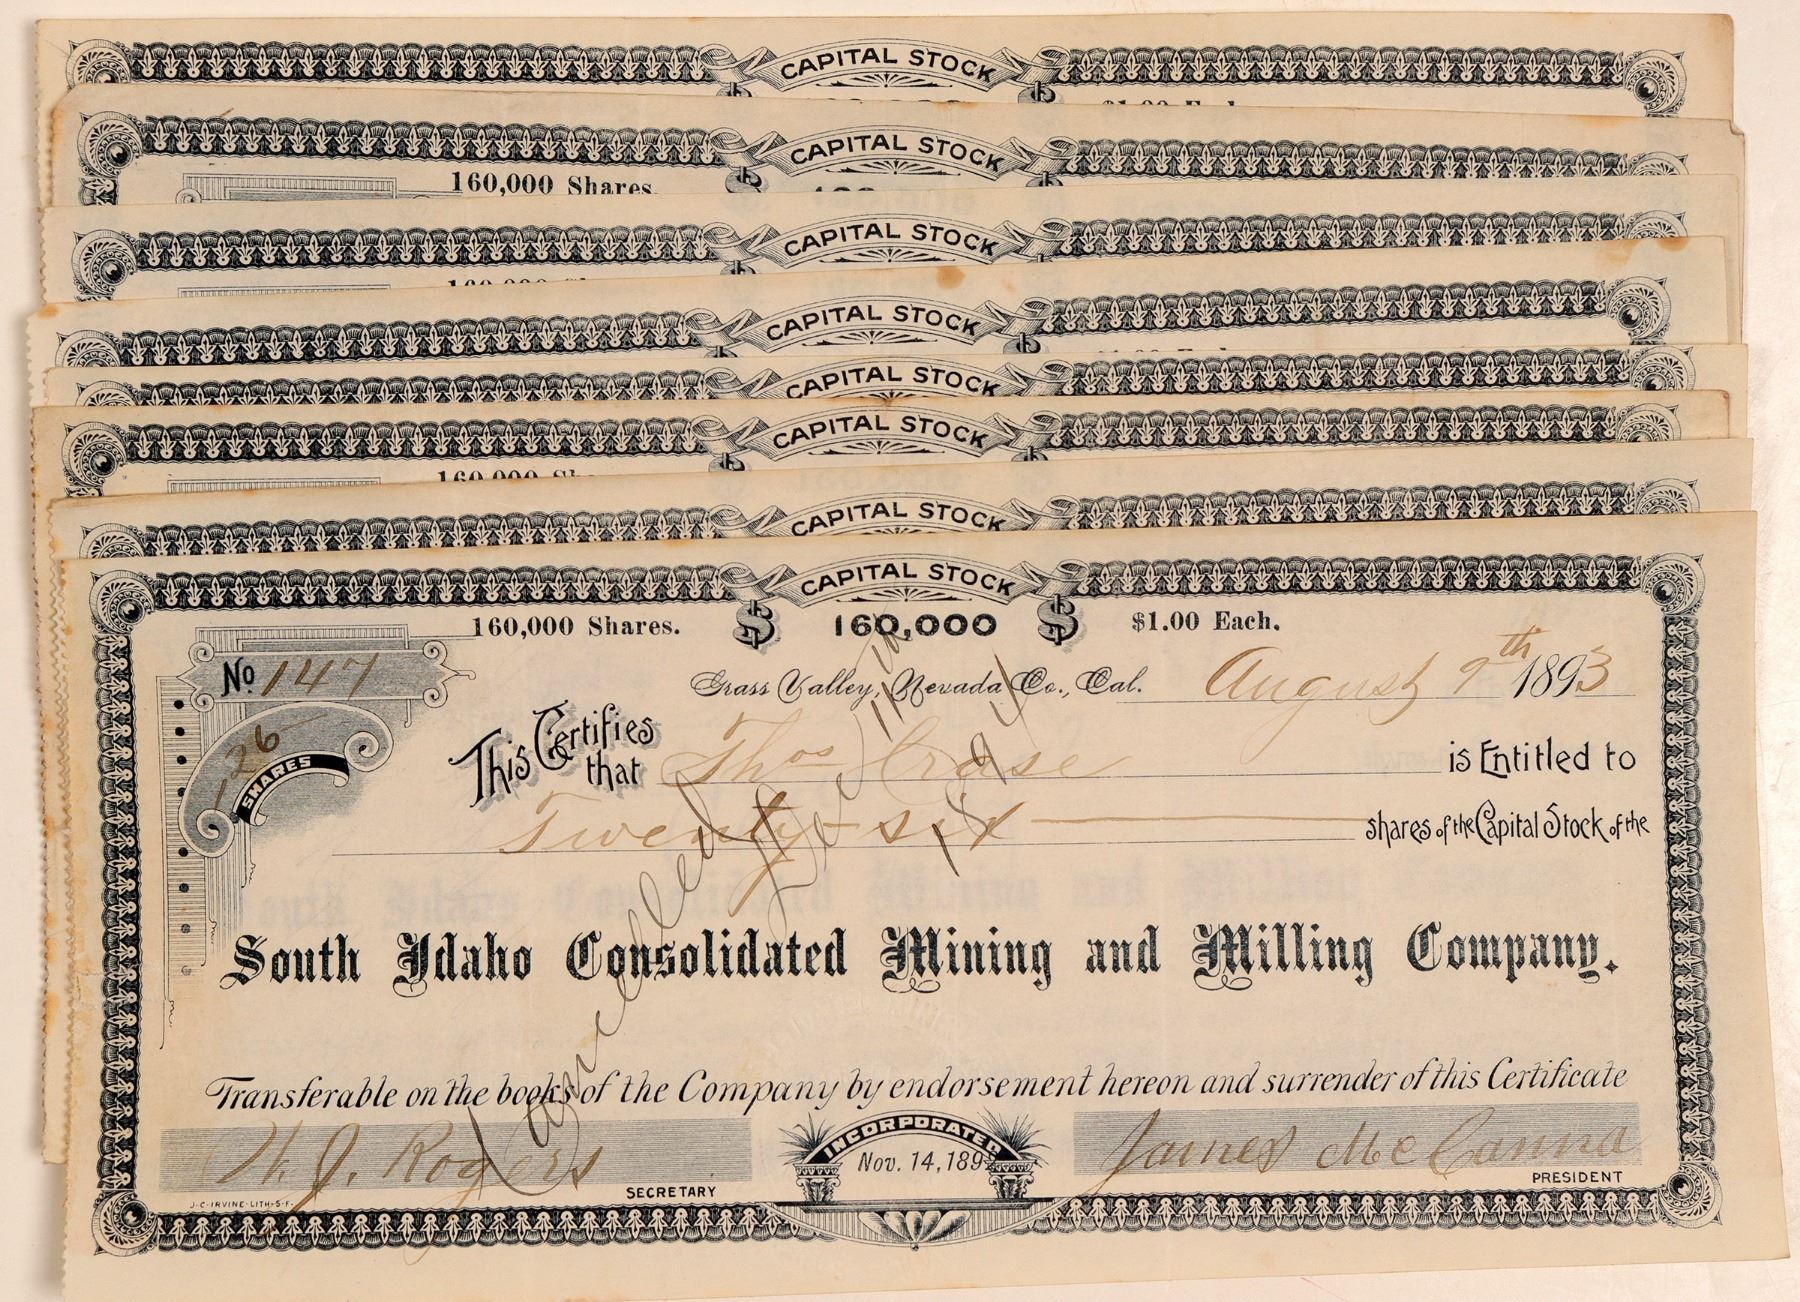 CAPITAL STOCK
CAPITAL STOCK
160,000 Shares.
CAPITAL STOCK
CAPITAL STOCK
CAPITAL STOCK
CAPITAL STOCK
CAPITAL STOCK
CAPITAL STOCK
160,000 Shares. $ 160,000 $ $1.00 Each.
No 147
Grass Valley, Nevada Co., Cal. August 9th 1893
26 SHARES
This Certifies that Thos Crase is Entitled to
Twenty-six shares of the Capital Stock of the
Cancelled Dec 11th 1894
South Idaho Consolidated Mining and Milling Company.
Transferable on the books of the Company by endorsement hereon and surrender of this Certificate
W. J. Rogers
SECRETARY
INCORPORATED
Nov. 14, 189
James McCanna
PRESIDENT
J.C. IRVINE-LITH-S.F.